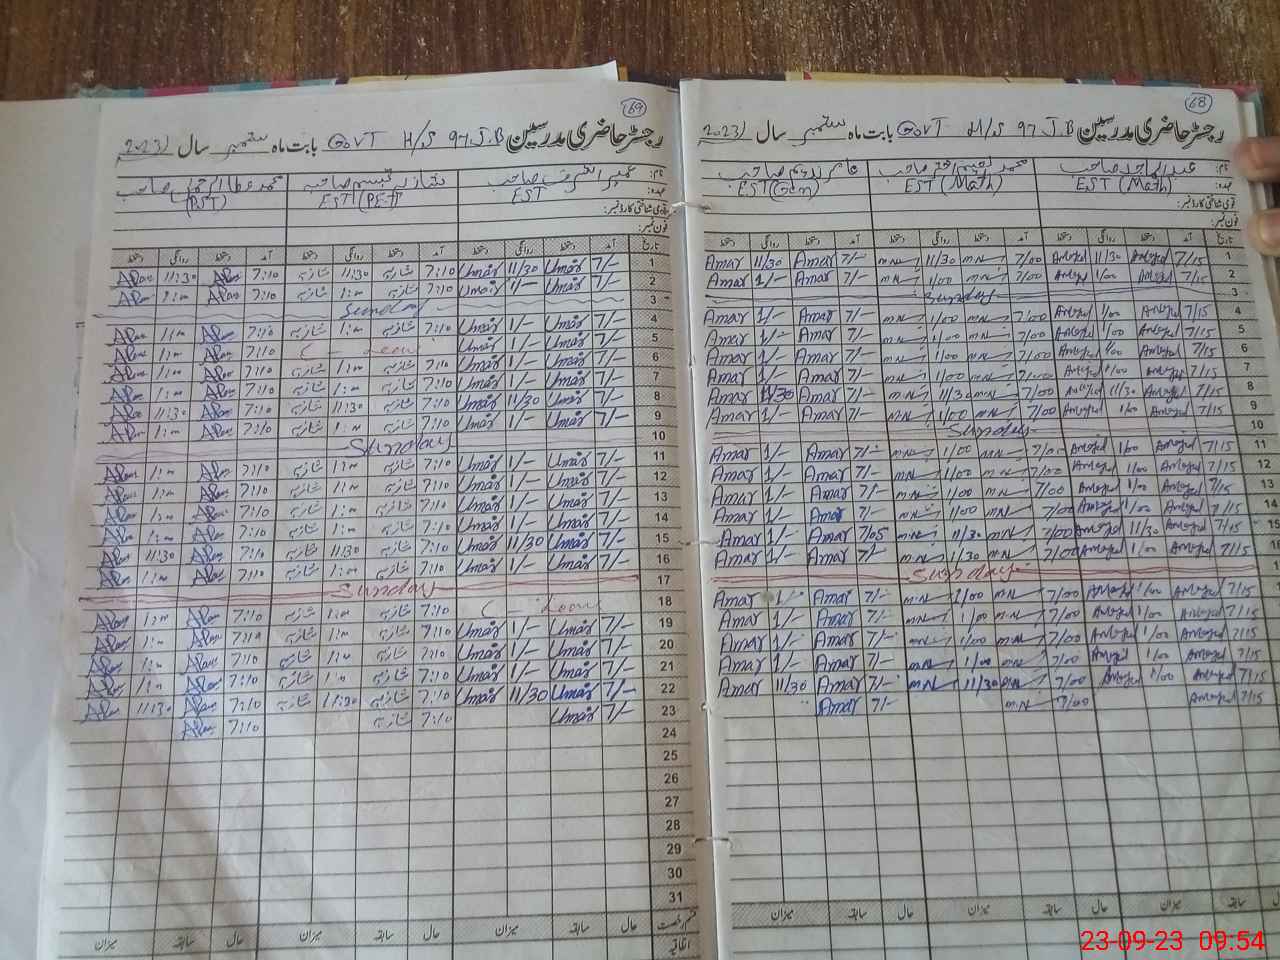 169
رجسٹر حاضری مدرسین GOVT H/S 97 J.B بابت ماہ ستمبر سال 2023
نام: عمیر اشرف صاحب شازیہ تبسم صاحبہ محمد عطاالرحمٰن صاحب
عہدہ: EST EST (PET) (PST)
قومی شناختی کارڈ نمبر:
فون نمبر:
تاریخ آمد دستخط روانگی دستخط آمد دستخط روانگی دستخط آمد دستخط روانگی دستخط
1 7/- Umair 11/30 Umair 7:10 شازیہ 11:30 شازیہ 7:10 11:30
2 7/- Umair 1/- Umair 7:10 شازیہ 1:00 شازیہ 7:10 1:00
3 Sunday
4 7/- Umair 1/- Umair 7:10 شازیہ 1:00 شازیہ 7:10 1:00
5 7/- Umair 1/- Umair C - Leave 7:10 1:00
6 7/- Umair 1/- Umair 7:10 شازیہ 1:00 شازیہ 7:10 1:00
7 7/- Umair 1/- Umair 7:10 شازیہ 1:00 شازیہ 7:10 1:00
8 7/- Umair 11/30 Umair 7:10 شازیہ 11:30 شازیہ 7:10 11:30
9 7/- Umair 1/- Umair 7:10 شازیہ 1:00 شازیہ 7:10 1:00
10 Sunday
11 7/- Umair 1/- Umair 7:10 شازیہ 1:00 شازیہ 7:10 1:00
12 7/- Umair 1/- Umair 7:10 شازیہ 1:00 شازیہ 7:10 1:00
13 7/- Umair 1/- Umair 7:10 شازیہ 1:00 شازیہ 7:10 1:00
14 7/- Umair 1/- Umair 7:10 شازیہ 1:00 شازیہ 7:10 1:00
15 7/- Umair 11/30 Umair 7:10 شازیہ 11:30 شازیہ 7:10 11:30
16 7/- Umair 1/- Umair 7:10 شازیہ 1:00 شازیہ 7:10 1:00
17 Sunday
18 C - Leave 7:10 شازیہ 1:00 شازیہ 7:10 1:00
19 7/- Umair 1/- Umair 7:10 شازیہ 1:00 شازیہ 7:10 1:00
20 7/- Umair 1/- Umair 7:10 شازیہ 1:00 شازیہ 7:10 1:00
21 7/- Umair 1/- Umair 7:10 شازیہ 1:00 شازیہ 7:10 1:00
22 7/- Umair 11/30 Umair 7:10 شازیہ 11:30 شازیہ 7:10 11:30
23 7/- Umair 7:10 شازیہ 7:10
24
25
26
27
28
29
30
31
حال سابقہ میزان حال سابقہ میزان
اتفاقیہ
168
رجسٹر حاضری مدرسین GOVT H/S 97 J.B بابت ماہ ستمبر سال 2023
نام: عبدالماجد صاحب محمد نعیم اختر صاحب عامر ندیم صاحب
عہدہ: EST (Math) EST (Math) EST (Gen)
قومی شناختی کارڈ نمبر:
فون نمبر:
تاریخ آمد دستخط روانگی دستخط آمد دستخط روانگی دستخط آمد دستخط روانگی دستخط
1 7/15 11/30 7/00 M.N 11/30 M.N 7/- Amar 11/30 Amar
2 7/15 1/00 7/00 M.N 1/00 M.N 7/- Amar 1/- Amar
3 Sunday
4 7/15 1/00 7/00 M.N 1/00 M.N 7/- Amar 1/- Amar
5 7/15 1/00 7/00 M.N 1/00 M.N 7/- Amar 1/- Amar
6 7/15 1/00 7/00 M.N 1/00 M.N 7/- Amar 1/- Amar
7 7/15 1/00 7/00 M.N 1/00 M.N 7/- Amar 1/- Amar
8 7/15 11/30 7/00 M.N 11/30 M.N 7/- Amar 11/30 Amar
9 7/15 1/00 7/00 M.N 1/00 M.N 7/- Amar 1/- Amar
10 Sunday
11 7/15 1/00 7/00 M.N 1/00 M.N 7/- Amar 1/- Amar
12 7/15 1/00 7/00 M.N 1/00 M.N 7/- Amar 1/- Amar
13 7/15 1/00 7/00 M.N 1/00 M.N 7/- Amar 1/- Amar
14 7/15 1/00 7/00 M.N 1/00 M.N 7/- Amar 1/- Amar
15 7/15 11/30 7/00 M.N 11/30 M.N 7/05 Amar 1/- Amar
7/15 1/00 7/00 M.N 1/30 M.N 7/- Amar 1/- Amar
Sunday
7/15 1/00 7/00 M.N 1/00 M.N 7/- Amar 1/- Amar
7/15 1/00 7/00 M.N 1/00 M.N 7/- Amar 1/- Amar
7/15 1/00 7/00 M.N 1/00 M.N 7/- Amar 1/- Amar
7/15 1/00 7/00 M.N 1/00 M.N 7/- Amar 1/- Amar
7/15 1/00 7/00 M.N 11/30 M.N 7/- Amar 11/30 Amar
7/15 7/00 M.N 7/- Amar
حال سابقہ میزان حال سابقہ میزان
23-09-23 09:54